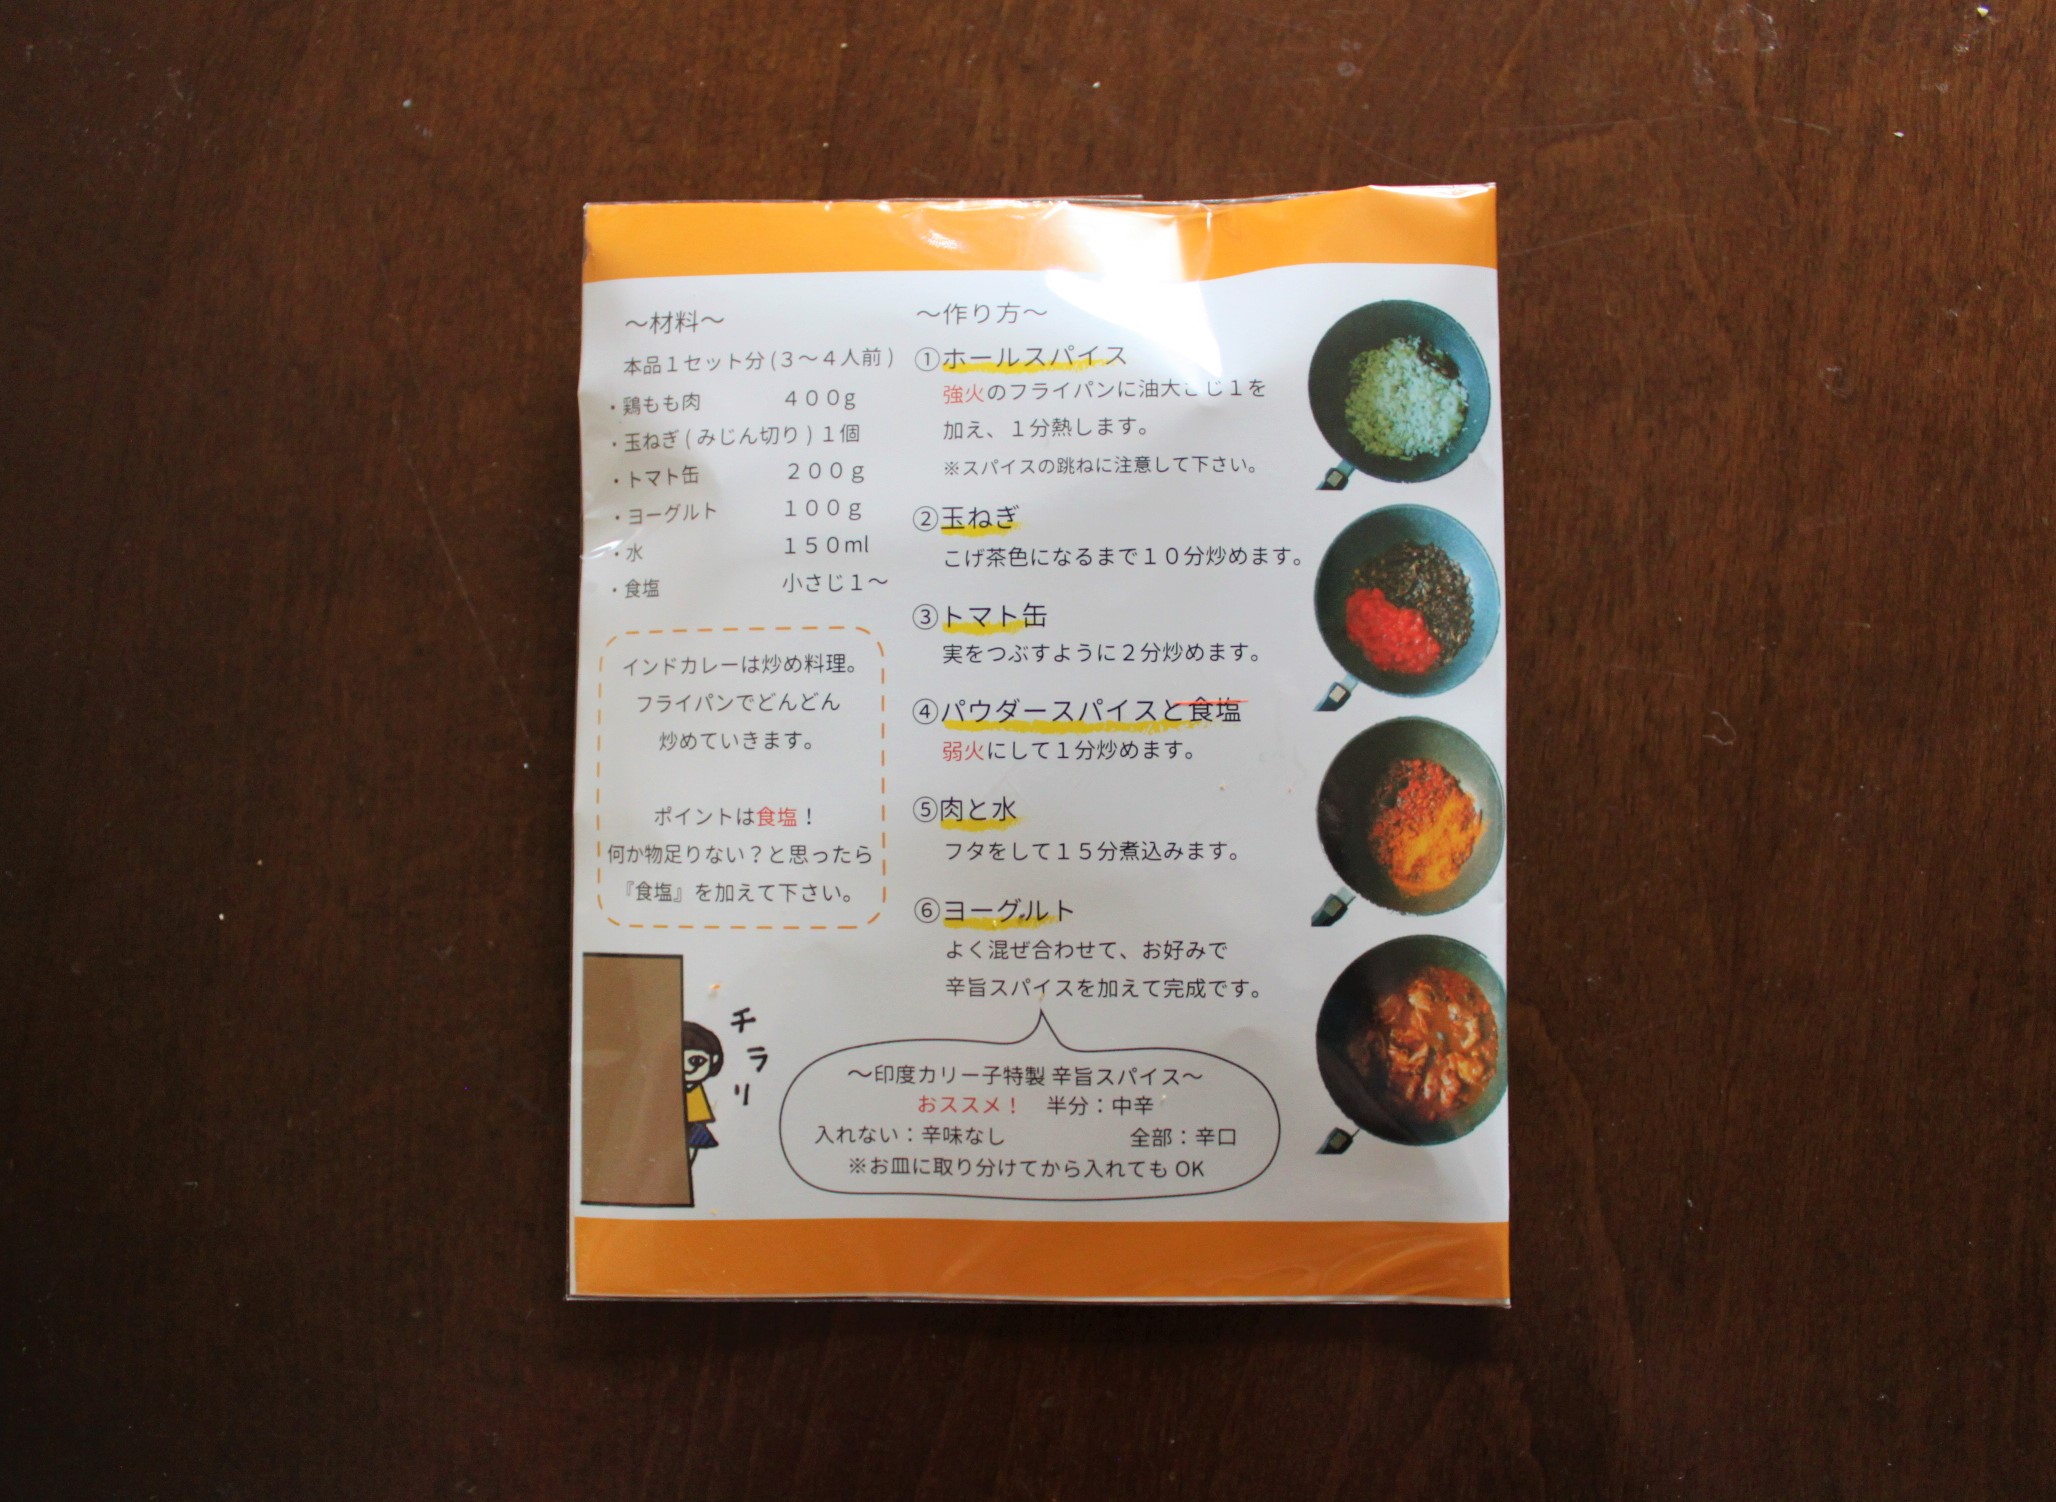 ～材料～
本品１セット分(３～４人前)
・鶏もも肉 ４００g
・玉ねぎ(みじん切り)１個
・トマト缶 ２００g
・ヨーグルト １００g
・水 １５０ml
・食塩 小さじ１～
インドカレーは炒め料理。
フライパンでどんどん
炒めていきます。
ポイントは食塩！
何か物足りない？と思ったら
『食塩』を加えて下さい。
チラリ
～作り方～
①ホールスパイス
強火のフライパンに油大さじ１を
加え、１分熱します。
※スパイスの跳ねに注意して下さい。
②玉ねぎ
こげ茶色になるまで１０分炒めます。
③トマト缶
実をつぶすように２分炒めます。
④パウダースパイスと食塩
弱火にして１分炒めます。
⑤肉と水
フタをして１５分煮込みます。
⑥ヨーグルト
よく混ぜ合わせて、お好みで
辛旨スパイスを加えて完成です。
～印度カリー子特製 辛旨スパイス～
おススメ！ 半分：中辛
入れない：辛味なし 全部：辛口
※お皿に取り分けてから入れてもOK